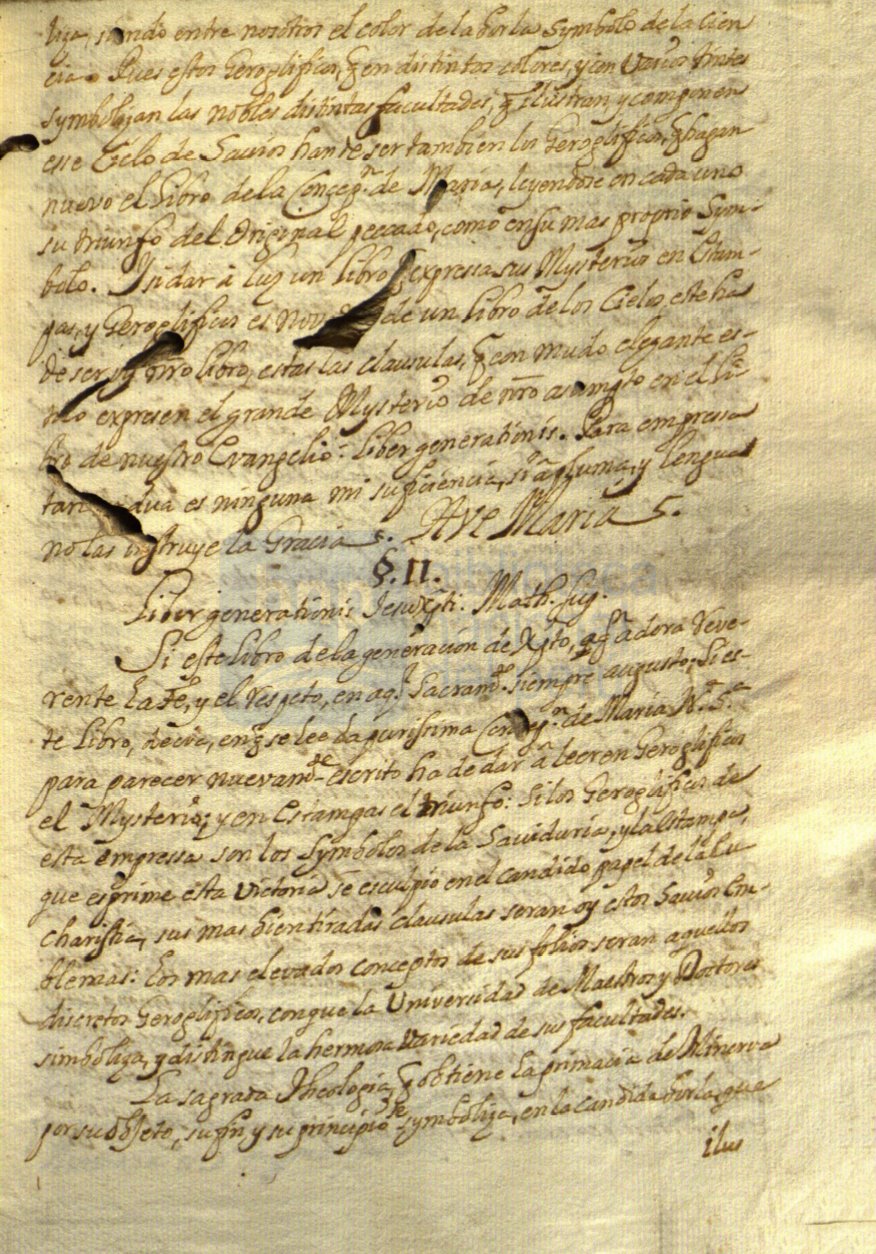 liza, siendo entre nosotros el color de la borla Symbolo de la Cien-
cia. Pues estos Geroglificos, q̃ en distintos colores, y con varios tintes
symbolizan las nobles distintas facultades, q̃ ilustran, y componen
esse Cielo de Savios han de ser tambien los Geroglificos, q̃ hagan
nuevo el libro de la Concepn. de Maria, leyendose en cada uno
su triunfo del Original peccado, como en su mas proprio Sym-
bolo. I si dar à luz un libro q̃ expressa sus Mysterios en Estam-
pas, y Geroglificos es de un libro de los Cielos este ha
de ser oy nro libro, estas las clausulas, q̃ con mudo elegante es-
tilo expresen el grande Mysterio de nro asumpto en el li-
bro de nuestro Evangelio: liber generationis. Para empressa
tan ardua es ninguna mi suficiencia, si à pluma, y lengua
no las instruye la Gracia. Ave Maria.
§. II.
Liber generationis Jesu Xpti. Math. sup.
Si este libro de la generacion de Xpto, a qn. adora Reve-
rente la Fe, y el respeto, en aql. Sacramto. siempre augusto: Si es-
te libro, decia, en q̃ se lee la purissima Concepn. de Maria Na. Sa.
para parecer nuevamte. escrito ha de dar à leer en Geroglificos
el Mysterio; y en Estampas el triunfo: Si los Geroglificos de
esta empressa son los Symbolos de la Saviduria, y la Estampa,
que esprime esta Victoria se esculpiò en el candido papel de la Eu
charistia, sus mas bien tiradas clausulas seran oy estos Savios Em-
blemas: Los mas elevados conceptos de sus folios seran aquellos
discretos Geroglificos, con que la Universidad de Maestros y Doctores
simboliza, y distingue la hermosa variedad de sus facultades.
La sagrada Theologia, q̃ obtiene la primacia de Minerva
por su objeto, su fin, y su principio se symboliza, en la candida borla, que
ilus